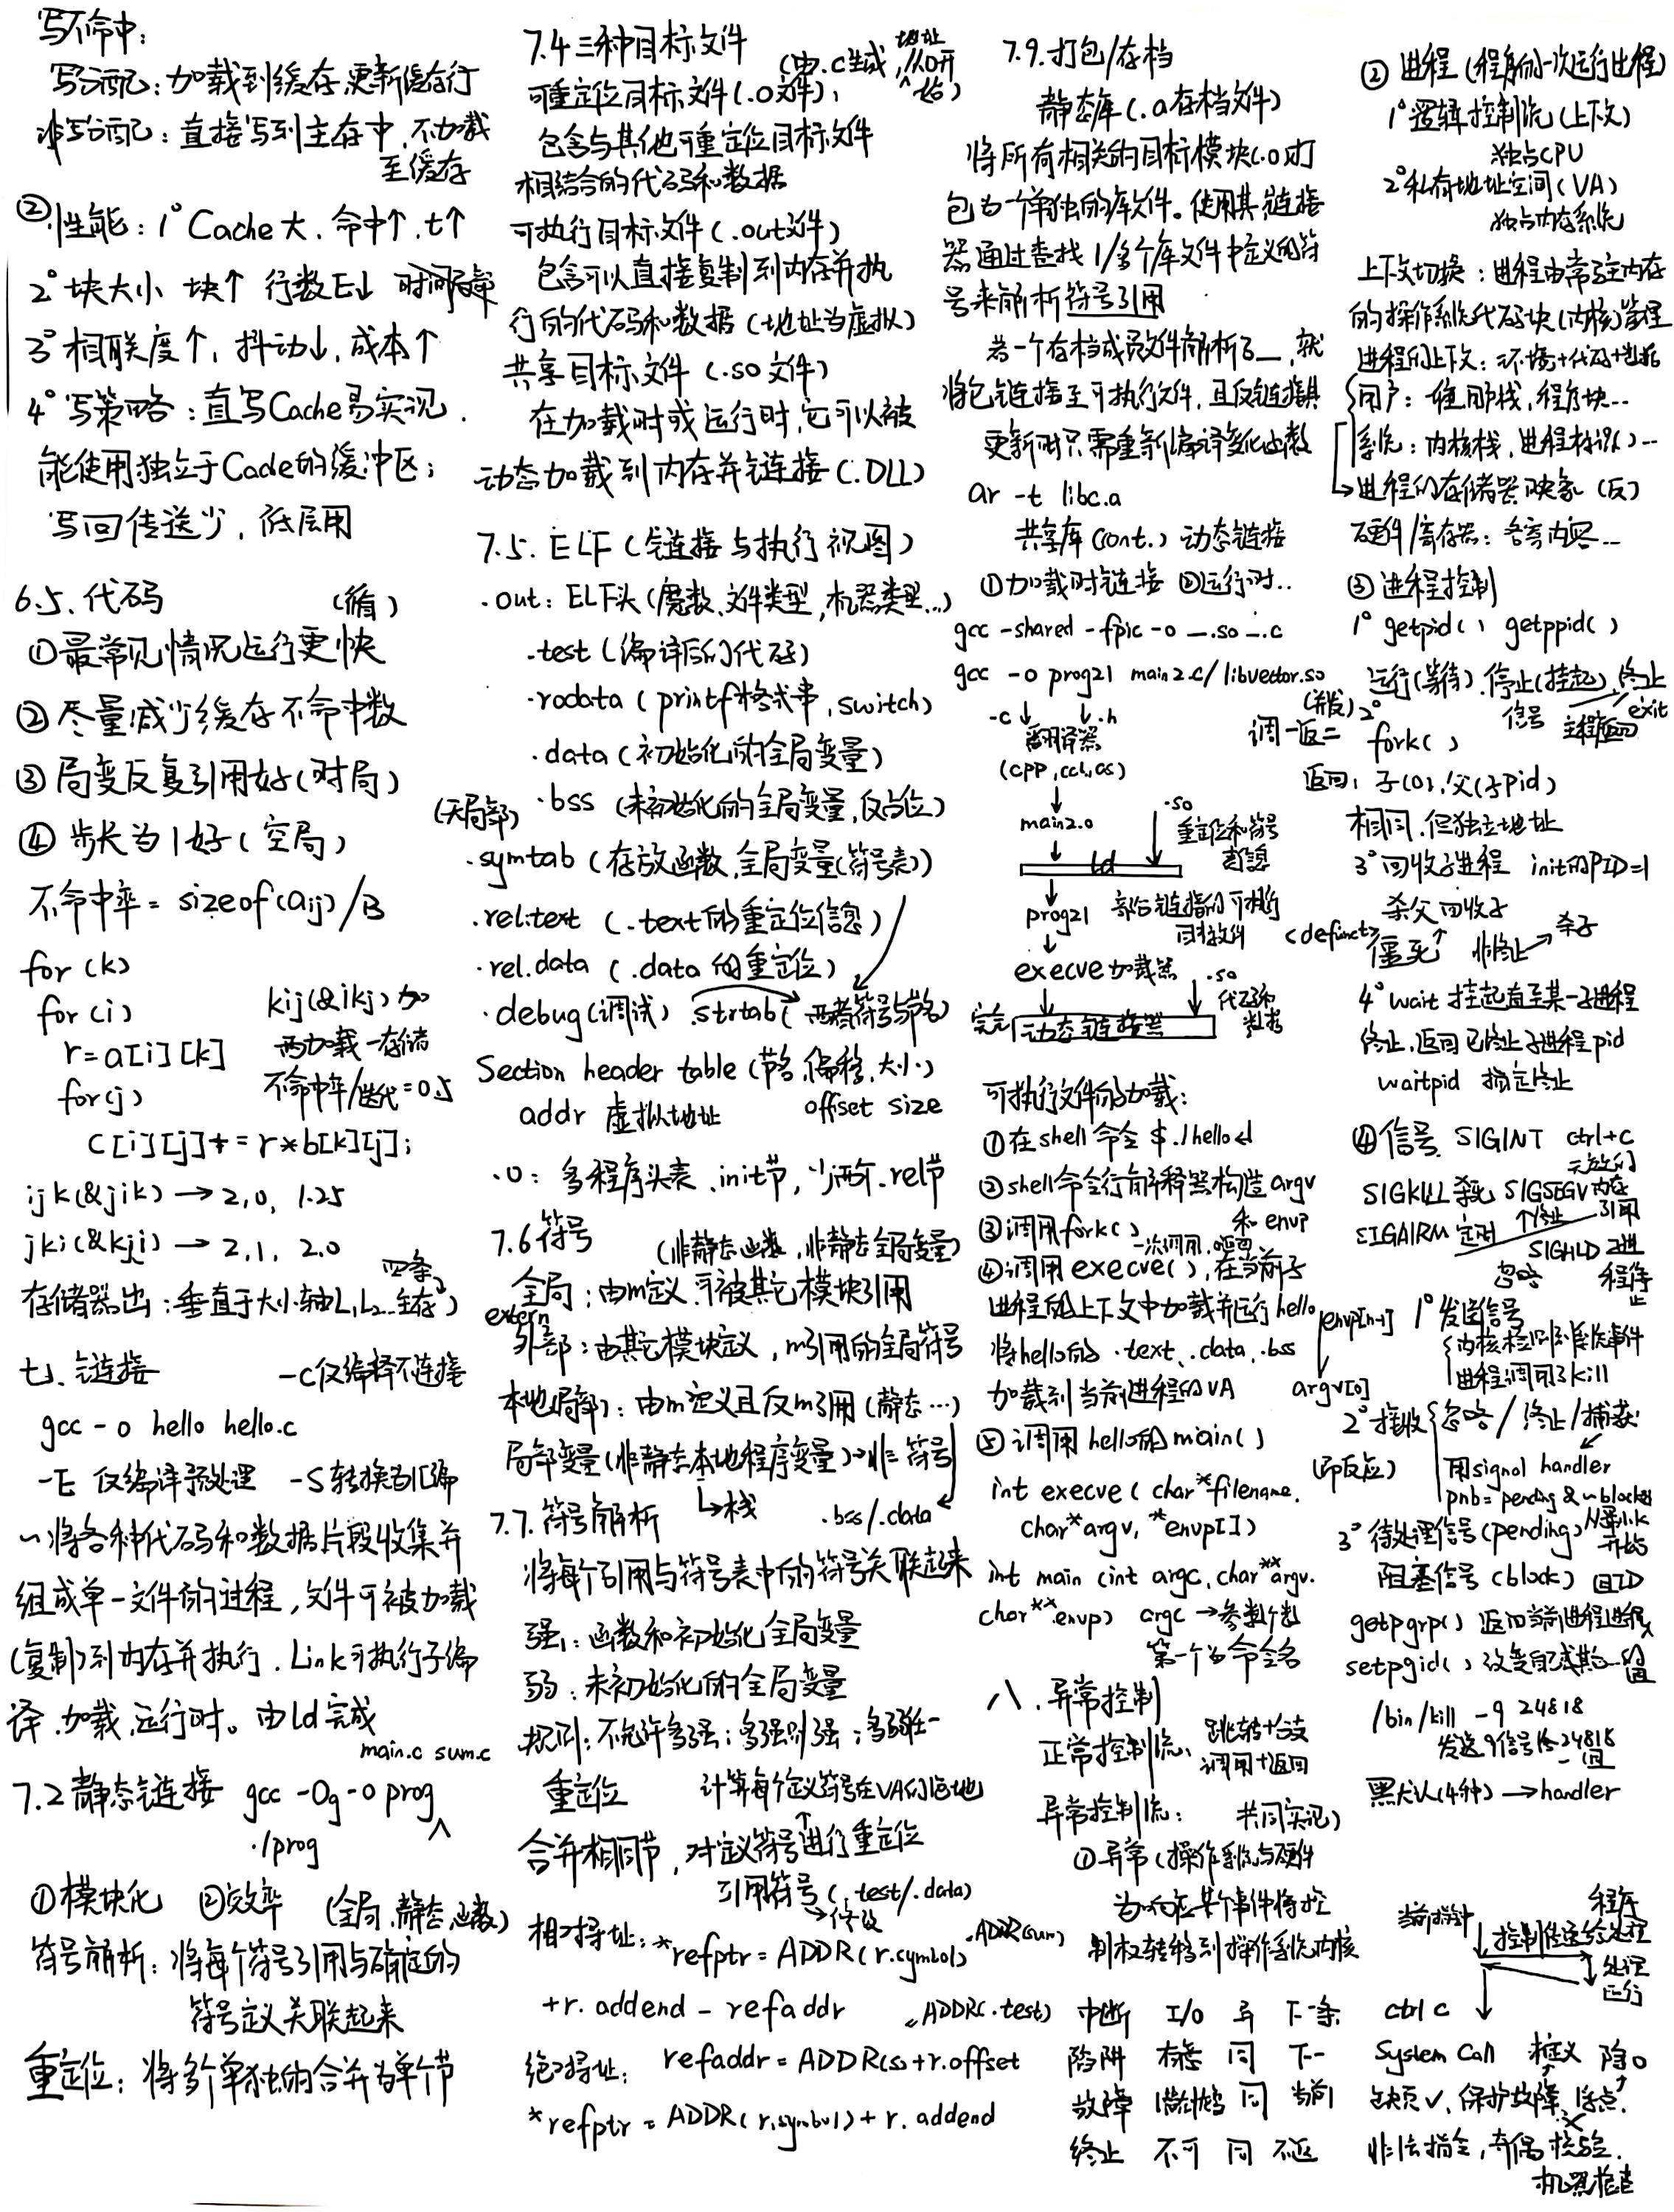 写不命中:
写分配:加载到缓存,更新缓存行
非写分配:直接写到主存中,不加载
至缓存
②性能:1° Cache大.命中↑.t↑
2° 块大小 块↑ 行数E↓ 时间局部
3° 相联度↑,抖动↓,成本↑
4° 写策略:直写Cache易实现.
能使用独立于Cade的缓冲区;
写回传送少,低层用
6.5.代码 (循)
①最常见情况运行更快
②尽量减少缓存不命中数
③局变反复引用好(时局)
④步长为1好(空局)
不命中率 = sizeof(aij)/B
for (k)
for (i) kij(&ikj)
r=a[i][k] 两加载一存储
for(j) 不命中率/迭代=0.5
c[i][j]+=r*b[k][j];
ijk(&jik) → 2,0, 1.25
jki(&kji) → 2,1, 2.0
存储器山:垂直于大小轴L1,L2...主存
四条
七.链接 -c仅编译不连接
gcc -o hello hello.c
-E 仅编译预处理 -S转换为汇编
~将各种代码和数据片段收集并
组成单一文件的过程,文件可被加载
(复制)到内存并执行.Link可执行于编
译.加载.运行时。由ld完成
main.c sum.c
7.2静态链接 gcc -Og -o prog ^
./prog
①模块化 ②效率 (全局,静态,函数)
符号解析:将每个符号引用与确定的
符号定义关联起来
重定位:将多个单独的合并为单个节
7.4三种目标文件 (由.c生成,地址从0开始)
可重定位目标文件(.o文件),
包含与其他可重定位目标文件
相结合的代码和数据
可执行目标文件(.out文件)
包含可以直接复制到内存并执
行的代码和数据(地址为虚拟)
共享目标文件(.so文件)
在加载时或运行时,它可以被
动态加载到内存并链接(.DLL)
7.5. ELF(链接与执行视图)
.out: ELF头(魔数.文件类型,机器类型...)
.test(编译后的代码)
.rodata(printf格式串,switch)
.data(初始化的全局变量)
(无局部) .bss(未初始化的全局变量,仅占位)
.symtab(存放函数,全局变量(符号表))
.rel.text(.text的重定位信息)
.rel.data(.data的重定位)
.debug(调试) .strtab(两者符号与节名)
Section header table(节名,偏移,大小)
addr 虚拟地址 offset size
.o: 多程序头表.init节,少两个.rel节
7.6符号 (非静态函数,非静态全局变量)
全局:由m定义.可被其它模块引用
extern
外部:由其它模块定义,m引用的全局符号
本地(局部):由m定义且仅m引用(静态...)
局部变量(非静态本地程序变量)→非符号
↳栈 .bss/.data
7.7.符号解析
将每个引用与符号表中的符号关联起来
强:函数和初始化全局变量
弱:未初始化的全局变量
规则:不允许多强;多强则强;多弱任一
重定位 计算每个定义符号在VA的地址
合并相同节,对定义符号进行重定位
引用符号(.test/.data)
→修改
相对寻址:*refptr = ADDR(r.symbol) ADDR(sum)
+r.addend - refaddr ADDR(.test)
绝对寻址: refaddr = ADDR(s)+r.offset
*refptr = ADDR(r.symbol)+r.addend
7.9.打包/存档
静态库(.a存档文件)
将所有相关的目标模块(.o)打
包为一个单独的库文件。使用其,链接
器通过查找1/多个库文件中定义的符
号来解析符号引用
若一个存档成员文件解析了__,就
将它链接至可执行文件,且仅链接其
更新时只需重新编译变化函数
ar -t libc.a
共享库(cont.)动态链接
①加载时链接 ②运行时..
gcc -shared -fpic -o __.so __.c
gcc -o prog21 main2.c/libvector.so
-c↓ ↓.h
翻译器
(cpp,cc1,as)
↓
main2.o .so 重定位和符号
↓ 表信息
ld
↓
prog21 部分链接的可执行
↓ 目标文件
execve加载器 .so
代码和
完全 动态链接器 数据
可执行文件的加载:
①在shell命令$./hello↲
②shell命令行解释器构造argv
和envp
③调用fork()
④调用execve(),在当前子
进程的上下文中加载并运行hello
将hello的.text,.data,.bss
加载到当前进程的VA
⑤调用hello的main()
int execve(char*filename,
char*argv, *envp[])
int main(int argc,char**argv.
char**envp) argc→参数个数
第一个为命令名
八.异常控制
正常控制流: 跳转+分支
调用+返回
异常控制流: 共同实现)
①异常(操作系统与硬件
为响应某个事件将控
制权转移到操作系统内核
中断 I/O 异 下一条 ctrl c
陷阱 有意 同 下一 System Call
故障 同 当前 缺页√,保护故障,
终止 不可 同 不返 非法指令,奇偶校验.
机器检查
②进程(程序的一次运行过程)
1°逻辑控制流(上下文)
独占CPU
2°私有地址空间(VA)
独占内存系统
上下文切换:进程由常驻内存
的操作系统代码块(内核)管理
进程的上下文:环境+代码+数据
用户:使用户栈,程序块...
系统:内核栈,进程标识()...
→进程的存储器映象(反)
硬件/寄存器:各寄内容...
③进程控制
1° getpid() getppid()
运行(等待).停止(挂起).终止
信号 主程返回 exit
(并发)2° fork()
调一返二
返回:子(0),父(子pid)
相同.但独立地址
3°回收子进程 init的PID=1
杀父回收子
<defunct> 僵死↑ 非终止→杀子
4° wait 挂起直至某一子进程
终止,返回已终止子进程pid
waitpid 指定终止
④信号 SIGINT ctrl+c
SIGKILL 杀死 SIGSEGV 无效的内存引用
SIGAlRM 定时 ↑终止
SIGHLD 子进程停止
忽略
envp[n-1]
↓
argv[0]
1°发送信号
内核检测到系统事件
进程调用了kill
2°接收 忽略/终止/捕获
(即反应) 用signal handler
pnb = pending & ~blocked
3°待处理信号(pending)
阻塞信号(block)
getpgrp()返回当前进程进程组ID
setpgid()改变自己或其它组
/bin/kill -9 24818
发送9信号给24818
默认(4种)→handler
当前指针 控制传送给处理程序
处理
运行